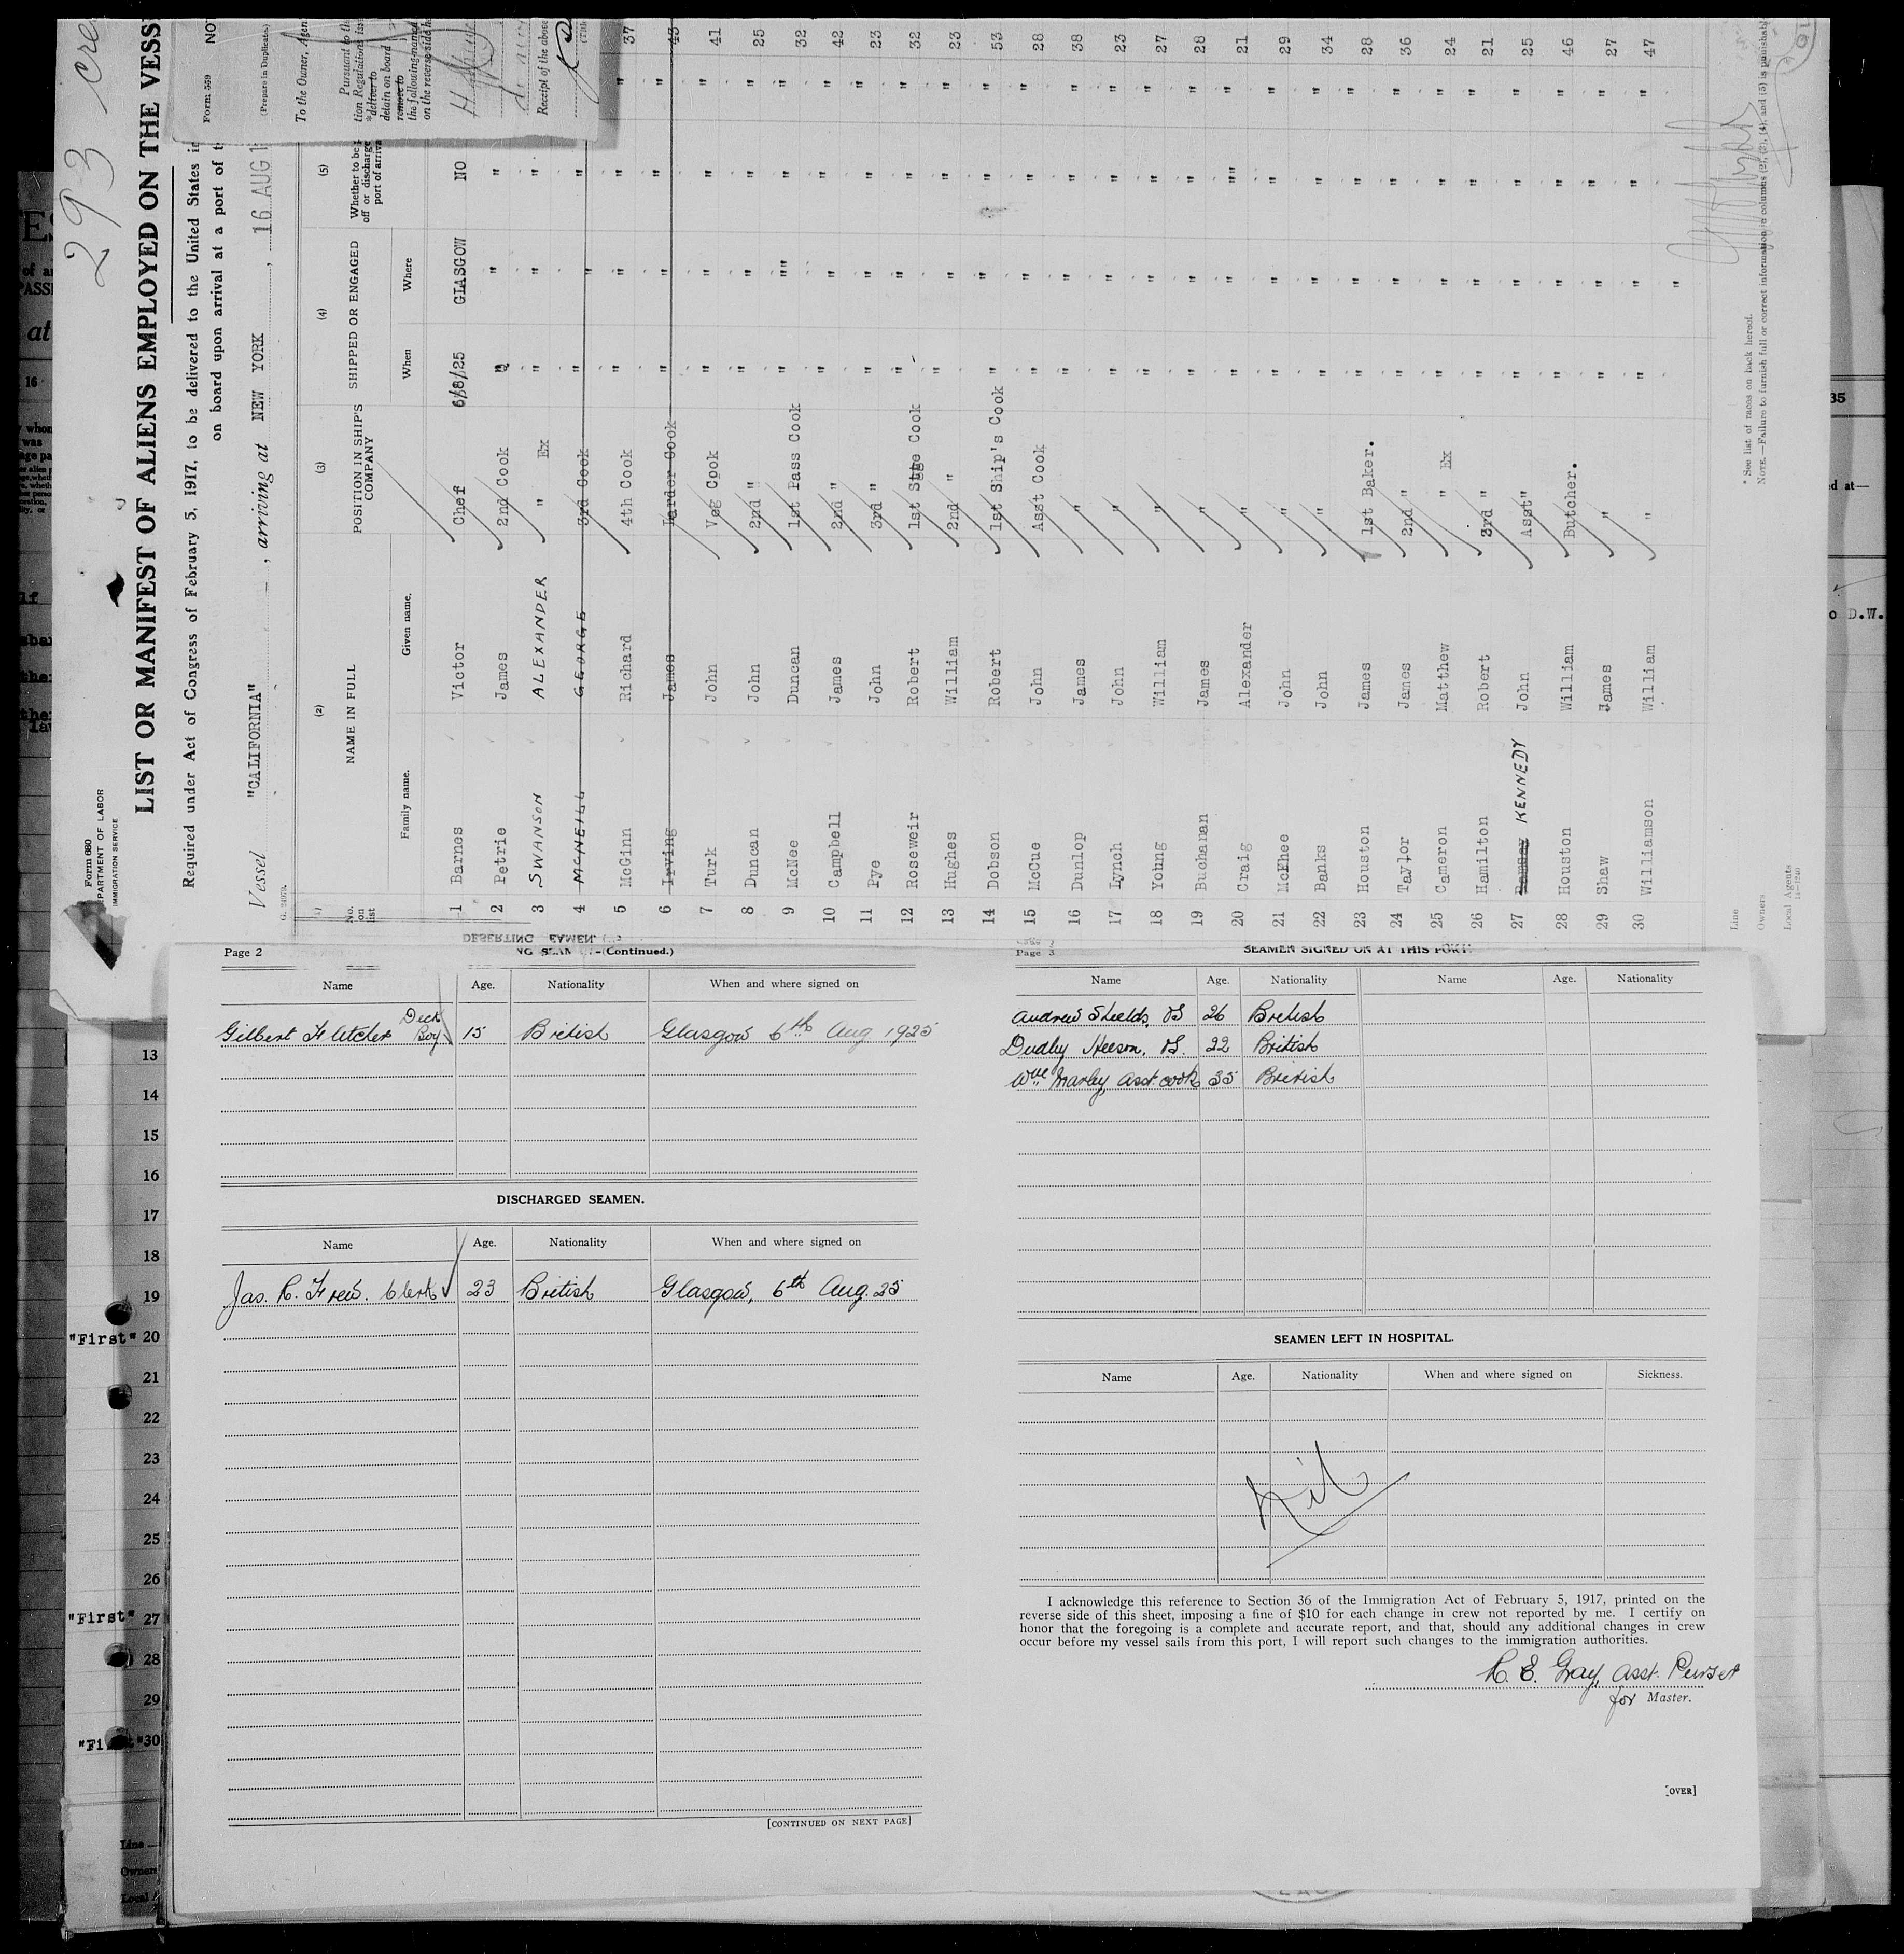 293 cre
Form 680
PARTMENT OF LABOR
IMMIGRATION SERVICE
LIST OR MANIFEST OF ALIENS EMPLOYED ON THE VESS
Required under Act of Congress of February 5, 1917, to be delivered to the United States
on board upon arrival at a port of
Vessel "CALIFORNIA", arriving at NEW YORK, 16 AUG 1
(1) (2) (3) (4) (5)
No. on list NAME IN FULL POSITION IN SHIP'S COMPANY SHIPPED OR ENGAGED Whether to be off or discharge port of arriva
Family name. Given name. When Where
1 Barnes Victor Chef 6/8/25 GLASGOW NO
2 Petrie James 2nd Cook " " "
3 SWANSON ALEXANDER " Ex " " "
4 MCNEILL GEORGE 3rd Cook " " "
5 McGinn Richard 4th Cook " " " " 37
6 Irving James Larder Cook " " " " 43
7 Turk John Veg Cook " " " " 41
8 Duncan John 2nd " " " " " 25
9 McNee Duncan 1st Pass Cook " " " " 32
10 Campbell James 2nd " " " " " 42
11 Pye John 3rd " " " " " 23
12 Roseweir Robert 1st Stge Cook " " " " 32
13 Hughes William 2nd " " " " " 23
14 Dobson Robert 1st Ship's Cook " " " " 53
15 McCue John Asst Cook " " " " 28
16 Dunlop James " " " " " 38
17 Lynch John " " " " " 23
18 Young William " " " " " 27
19 Buchanan James " " " " " 28
20 Craig Alexander " " " " " 21
21 McKhee John " " " " " 29
22 Banks John " " " " " 34
23 Houston James 1st Baker. " " " " 28
24 Taylor James 2nd " " " " " 36
25 Cameron Matthew " Ex " " " " 24
26 Hamilton Robert 3rd " " " " " 21
27 KENNEDY John Asst " " " " " 25
28 Houston William Butcher. " " " " 46
29 Shaw James " " " " " 27
30 Williamson William " " " " " 47
Line
Owners
Local Agents
* See list of races on back hereof.
NOTE.—Failure to furnish full or correct information in columns (2), (3), (4), and (5) is punishabl
Form 559 NO
(Prepare in Duplicate.)
To the Owner, Agen
Pursuant to the
tion Regulations iss
*deliver to
detain on board
remove to
the following-named
on the reverse side h
Receipt of the above
(Title
DESERTING SEAMEN.
Page 2 —(Continued.)
Name Age. Nationality When and where signed on
Gilbert Fletcher Deck Boy 15 British Glasgow 6th Aug 1925
DISCHARGED SEAMEN.
Name Age. Nationality When and where signed on
Jas. R. Frew. Clerk 23 British Glasgow, 6th Aug. 25
[CONTINUED ON NEXT PAGE]
Page 3 SEAMEN SIGNED ON AT THIS PORT.
Name Age. Nationality Name Age. Nationality
Andrew Shields, OS 26 British
Dudley Neeson, OS. 22 British
Wm Marley, Asst cook 35 British
SEAMEN LEFT IN HOSPITAL.
Name Age. Nationality When and where signed on Sickness.
Nil
I acknowledge this reference to Section 36 of the Immigration Act of February 5, 1917, printed on the
reverse side of this sheet, imposing a fine of $10 for each change in crew not reported by me. I certify on
honor that the foregoing is a complete and accurate report, and that, should any additional changes in crew
occur before my vessel sails from this port, I will report such changes to the immigration authorities.
R. E. Gray, Asst. Purser
for Master.
[OVER]
13
14
15
16
17
18
19
"First" 20
21
22
23
24
25
26
"First" 27
28
29
30
Line
Owners
Local
35
d at—
o D.W.